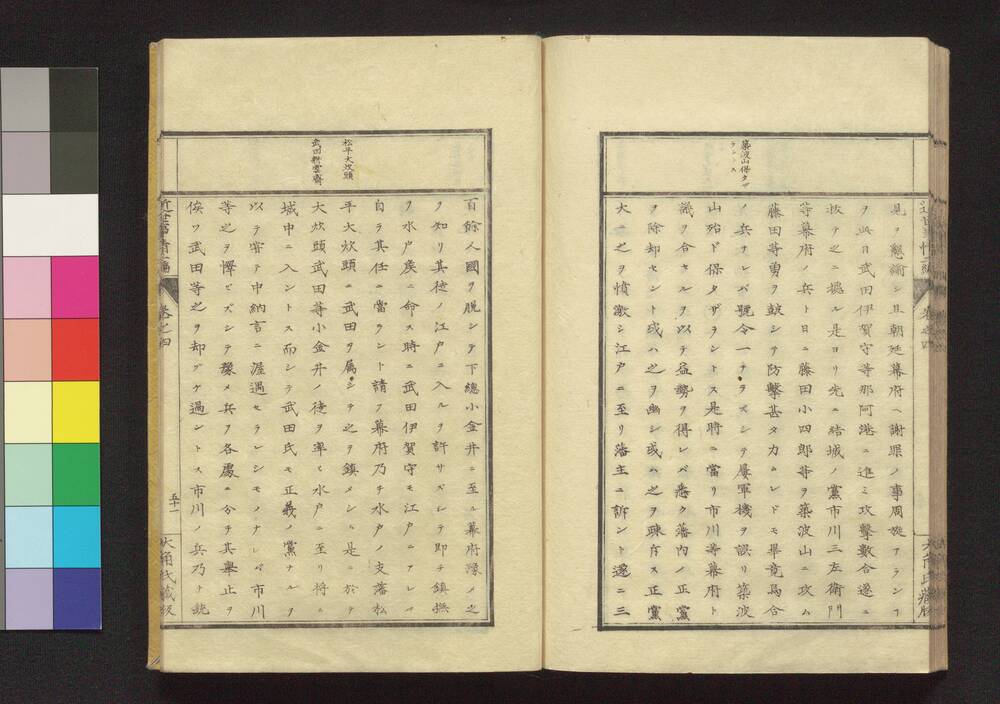 築波山保タザ
ラントス
見ヲ懇諭シ且朝廷幕府ヘ謝罪ノ事周旋アランコ
ヲ此日武田伊賀守等那阿港ニ進ミ攻撃数合遂ニ
抜テ之ニ據ル是ヨリ先ニ結城ノ黨市川三左衛門
等幕府ノ兵ト日ニ藤田小四郎等ヲ築波山ニ攻ム
藤田等勇ヲ皷シテ防擊甚タカムレドモ畢竟烏合
ノ兵ナレバ號令一ナラズシテ屡軍機ヲ誤リ築波
山殆ド保タザランシトス是時ニ當リ市川等幕府ト
議ヲ合セルヲ以テ益勢ヲ得レバ悉ク藩内ノ正黨
ヲ除却セント或ハ之ヲ幽シ或ハ之ヲ疎斥ス正黨
大ニ之ヲ憤激シ江戸ニ至リ藩主ニ訴ント遂ニ三
松平大炊頭
武田耕雲齋
百餘人國ヲ脱シテ下總小金井ニ至ル幕府豫メ之
ヲ知リ其徒ノ江戸ニ入ルヲ許サズシテ即チ鎮撫
ヲ水戸矦ニ命ス時ニ武田伊賀守モ江戸ニアレバ
自ラ其任ニ當ラント請フ幕府乃チ水戸ノ支藩松
平大炊頭ニ武田ヲ属シテ之ヲ鎮メシム是ニ於テ
大炊頭武田等小金井ノ徒ヲ率ヒ水戸ニ至リ将ニ
城中ニ入ントス而シテ武田氏モ正義ノ黨ナルヲ
以テ害テ中納言ニ渥遇セラレシモノナレバ市川
等之ヲ憚ヒズシテ豫メ兵ヲ各處ニ分チ其舉止ヲ
俟ツ武田等之ヲ却ゲケ過ントス市川ノ兵乃チ銃
卷之四
五十二
大角氏藏板